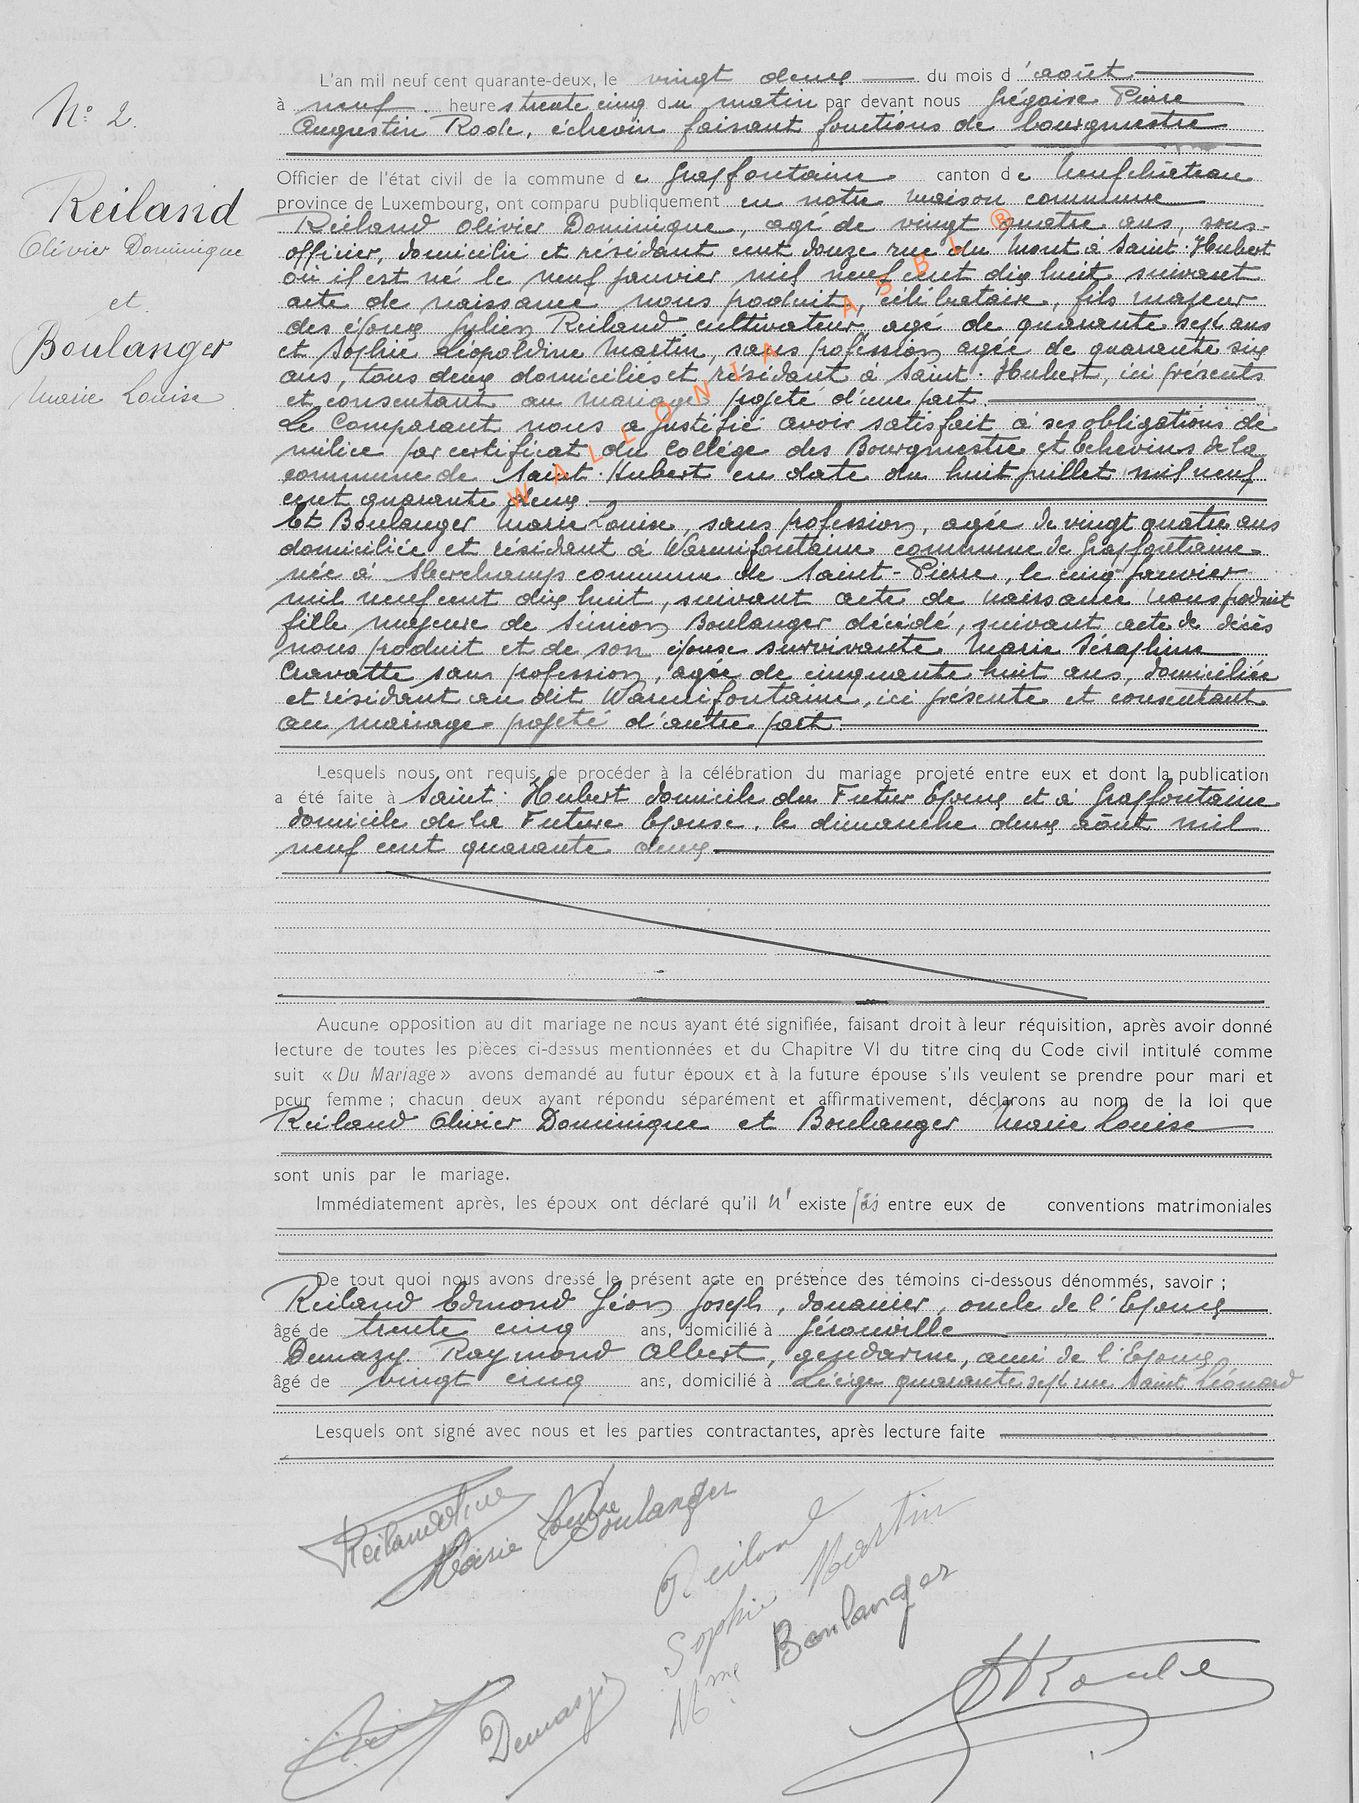 N° 2.
Reiland
Olivier Dominique
et
Boulanger
Marie Louise
L'an mil neuf cent quarante-deux, le vingt deux du mois d'août
à neuf heures trente cinq du matin par devant nous Grégoire Pierre
Augustin Rode, échevin faisant fonctions de bourgmestre
Officier de l'état civil de la commune de Grapfontaine canton de Neufchâteau
province de Luxembourg, ont comparu publiquement en notre maison commune
Reiland Olivier Dominique, agé de vingt quatre ans, sous-
officier, domicilié et résidant cent douze rue du Mont à Saint-Hubert
où il est né le neuf janvier mil neuf cent dix huit suivant
acte de naissance nous produit, célibataire, fils majeur
des époux Julien Reiland cultivateur agé de quarante sept ans
et Sophie Léopoldine Martin, sans profession agée de quarante six
ans, tous deux domiciliés et résidant à Saint-Hubert, ici présents
et consentant au mariage projeté d'une part.
Le Comparant nous a justifié avoir satisfait à ses obligations de
milice par certificat du Collège des Bourgmestre et Echevins de la
commune de Saint-Hubert en date du huit juillet mil neuf
cent quarante deux.
Et Boulanger Marie Louise, sans profession, agée de vingt quatre ans
domiciliée et résidant à Warmifontaine commune de Grapfontaine
née à Sberchamps commune de Saint-Pierre, le cinq janvier
mil neuf cent dix huit, suivant acte de naissance nous produit
fille majeure de Siméon Boulanger décédé, suivant acte de décès
nous produit et de son épouse survivante Marie Séraphine
Cravatte sans profession, agée de cinquante huit ans, domiciliée
et résidant au dit Warmifontaine, ici présente et consentant
au mariage projeté d'autre part.
Lesquels nous ont requis de procéder à la célébration du mariage projeté entre eux et dont la publication
a été faite à Saint-Hubert domicile du Futur Epoux et à Grapfontaine
domicile de la Future Epouse, le dimanche deux août mil
neuf cent quarante deux
Aucune opposition au dit mariage ne nous ayant été signifiée, faisant droit à leur réquisition, après avoir donné
lecture de toutes les pièces ci-dessus mentionnées et du Chapitre VI du titre cinq du Code civil intitulé comme
suit « Du Mariage » avons demandé au futur époux et à la future épouse s'ils veulent se prendre pour mari et
pour femme ; chacun deux ayant répondu séparément et affirmativement, déclarons au nom de la loi que
Reiland Olivier Dominique et Boulanger Marie Louise
sont unis par le mariage.
Immédiatement après, les époux ont déclaré qu'il n'existe pas entre eux de conventions matrimoniales
De tout quoi nous avons dressé le présent acte en présence des témoins ci-dessous dénommés, savoir ;
Reiland Edmond Léon Joseph, douanier, oncle de l'Epoux
âgé de trente cinq ans, domicilié à Gérouville
Demazy Raymond Albert, gendarme, ami de l'Epoux
âgé de vingt cinq ans, domicilié à Liège quarante sept rue Saint Léonard
Lesquels ont signé avec nous et les parties contractantes, après lecture faite
Marie Louise Boulanger
Reiland
Sophie Martin
Mme Boulanger
Demazy
WALLONIA ASBL ®